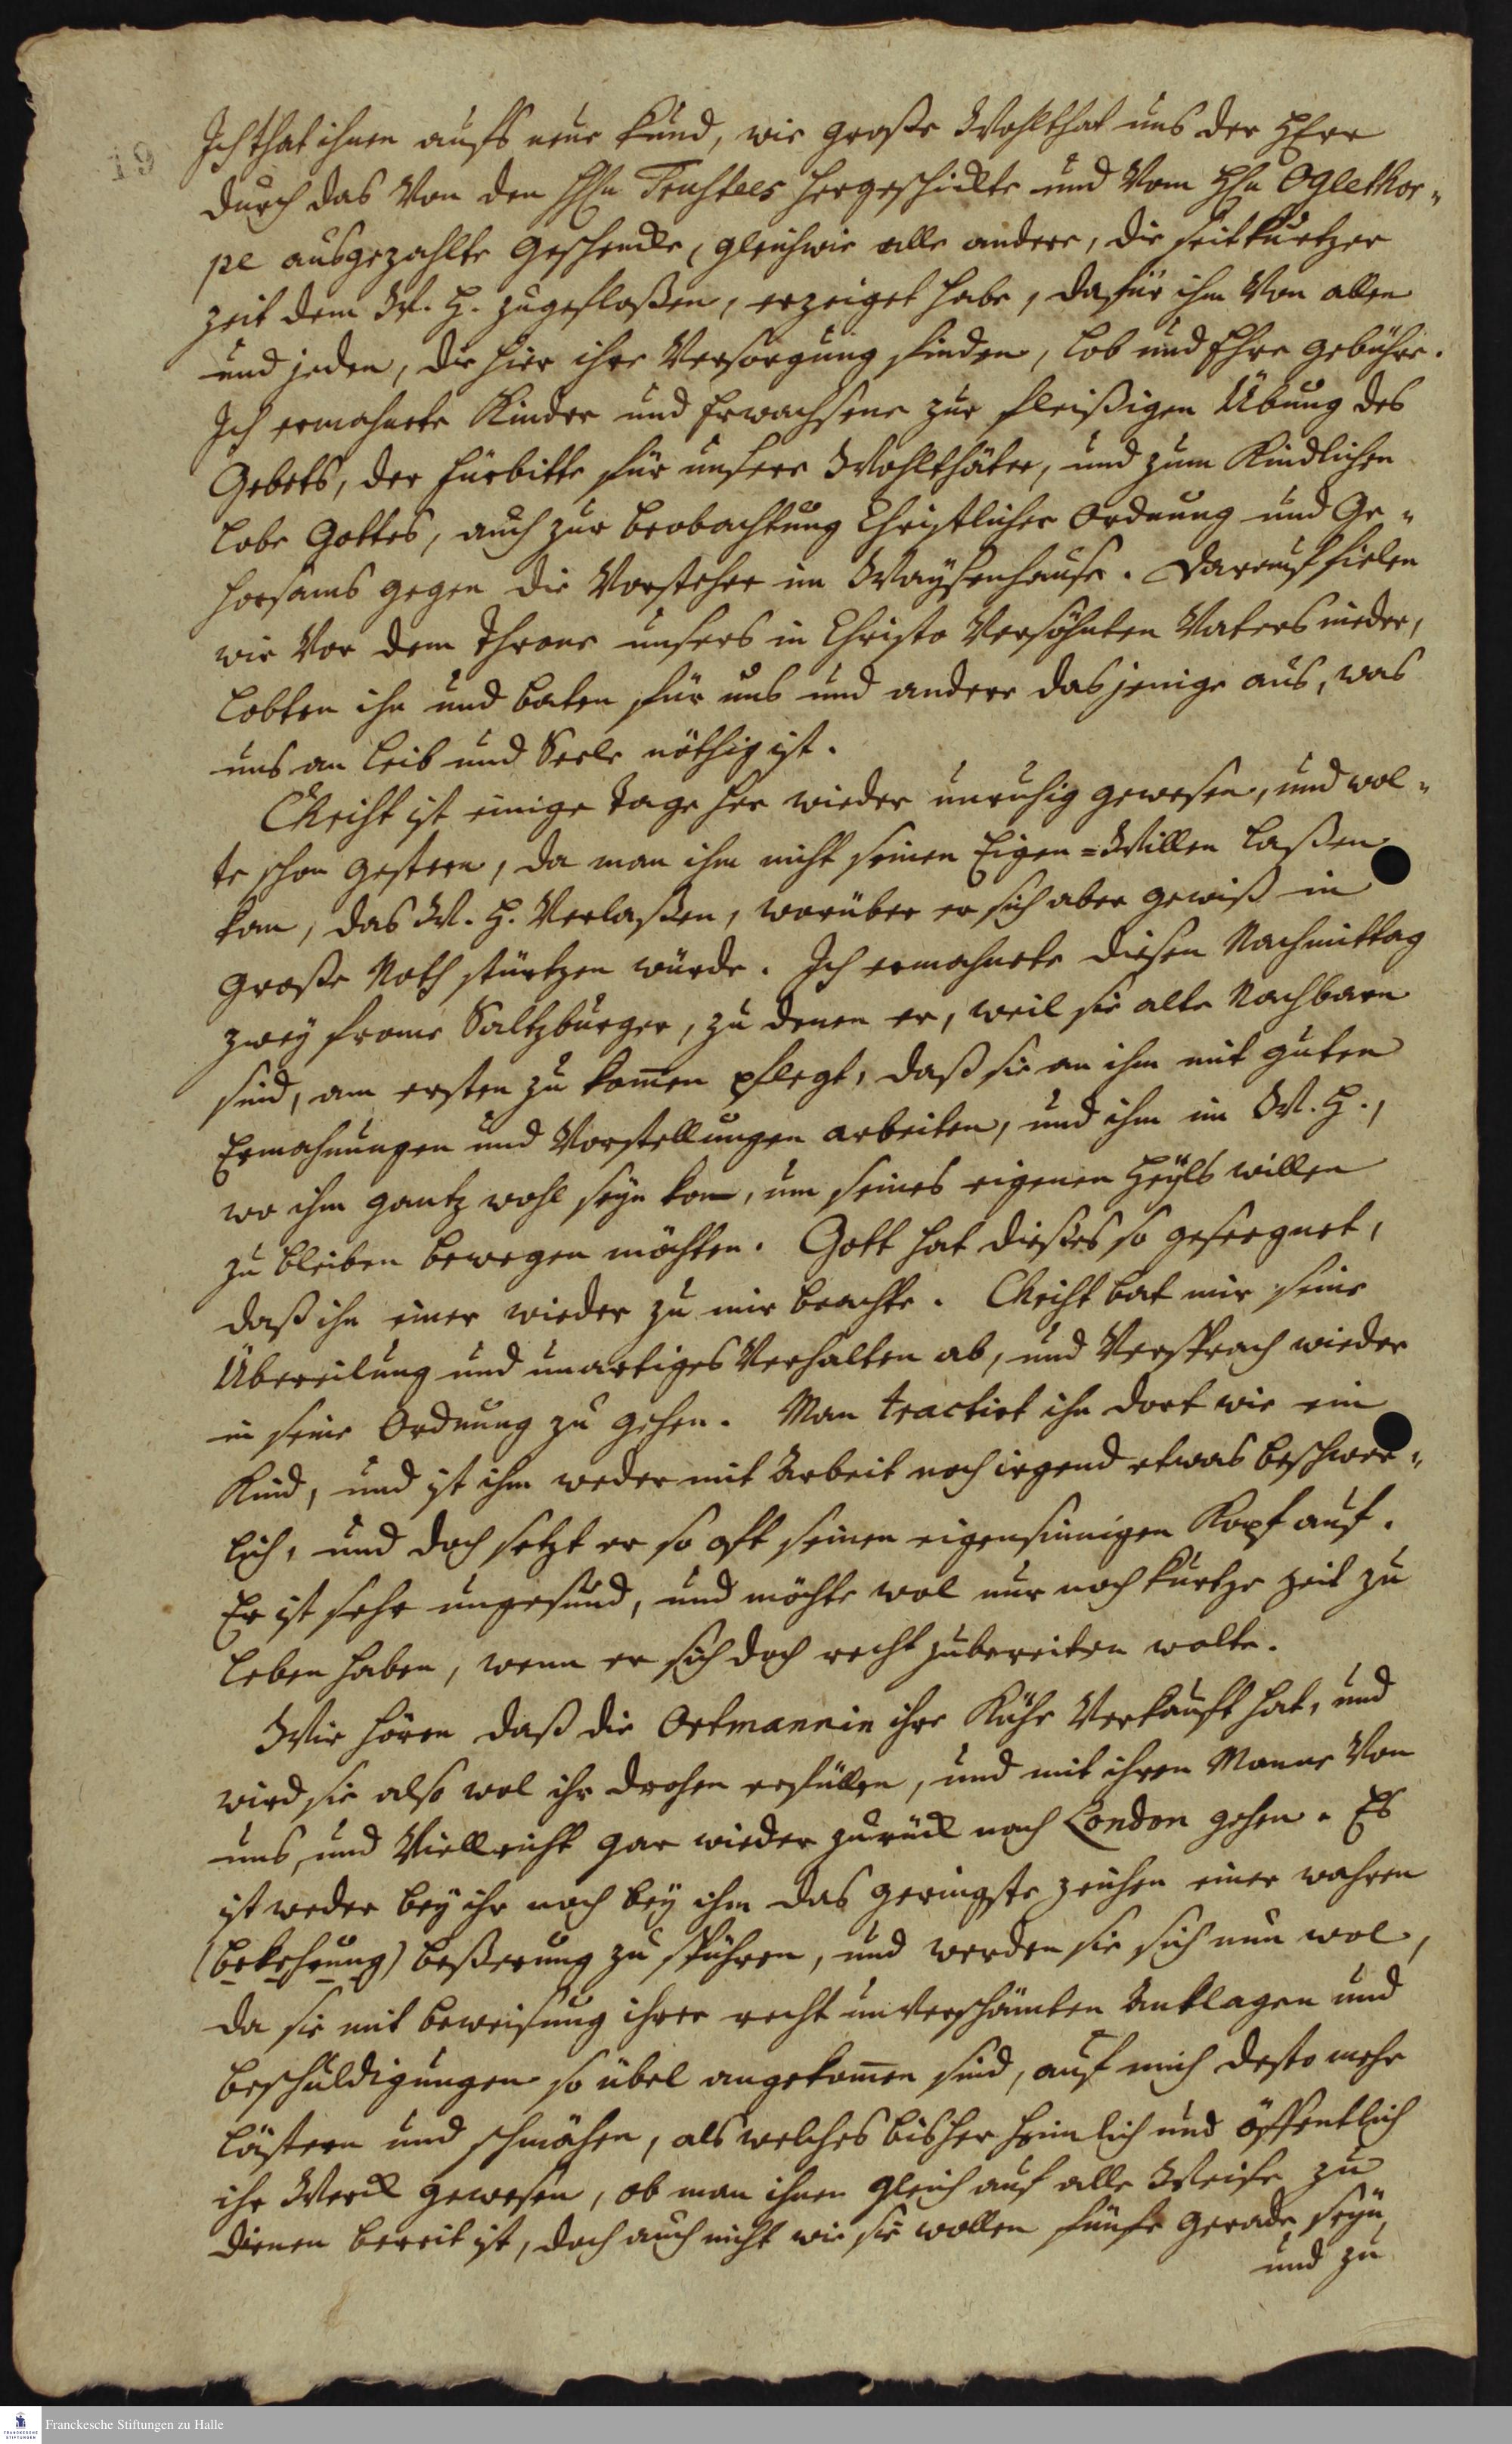 19
Ich that ihnen aufs neue kund, wie große Wohlthat uns der HErr
durch das von den HHn Trustees hergeschickte und vom Hn Oglethor-
pe ausgezahlte Geschencke, gleichwie alle andere, die seit kurtzer
Zeit dem W. H. zugefloßen, erzeiget habe, dafür ihm von allen
und jeden, die hier ihre Versorgung finden, Lob und Ehre gebühre.
Ich ermahnete Kinder und Erwachsene zur fleißigen Übung des
Gebets, der Fürbitte für unsere Wohlthäter, und zum Kindlichen
Lobe Gottes, auch zur Beobachtung Christlicher Ordnung und Ge-
horsams gegen die Vorsteher im Waysenhause. Darauf fielen
wir vor dem Throne unsers in Christo versöhnten Vaters nieder,
lobten ihn und baten für uns und andere dasjenige aus, was
uns an Leib und Seele nöthig ist.
ist einige Tage her wieder unruhig gewesen, und wol-
te schon gestern, da man ihm nicht seinen Eigen-Willen laßen
kan, das W. H. verlaßen, worüber er sich aber gewiß in
große Noth stürtzen würde. Ich ermahnete diesen Nachmittag
zwey frome Saltzburger, zu denen er, weil sie alte Nachbarn
sind, am ersten zu komen pflegt, daß sie an ihm mit guten
Ermahnungen und Vorstellungen arbeiten, und ihm im W. H.,
wo ihm gantz wohl seyn kan, um seines eigenen Heyls willen
zu bleiben bewegen möchten. Gott hat dieses so geseegnet,
daß ihn einer wieder zu mir brachte. bat mir seine
Übereilung und unartiges Verhalten ab, und versprach wieder
in seine Ordnung zu gehen. Man tractiret ihn dort wie ein
Kind, und ist ihm weder mit Arbeit noch irgend etwas beschwer-
lich, und doch setzt er so oft seinen eigensinnigen Kopf auf.
Er ist sehr ungesund, und möchte wol nur noch kurtze Zeit zu
leben haben, wenn er sich doch recht zubereiten wolte.
Wir hören daß die Ortmannin ihre Kühe verkauft hat, und
wird sie also wol ihr drohen erfüllen, und mit ihren Manne von
uns, und vielleicht gar wieder zurück nach London gehen. Es
ist weder bey ihr noch bey ihm das geringste Zeichen einer wahren
(Bekehrung) Beßerung zu spühren, und werden sie sich nun wol,
da sie mit Beweisung ihrer recht unverschämten Anklagen und
Beschuldigungen so übel angekomen sind, auf mich desto mehr
lästern und schmähen, als welches bisher heimlich und öffentlich
ihr Werck gewesen, ob man ihnen gleich auf alle Weise zu
dienen bereit ist, doch auch nicht wie sie wollen fünfe gerade seyn,
und zu
Franckesche Stiftungen zu Halle